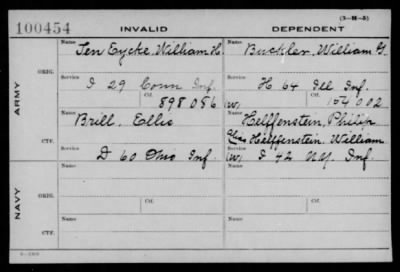 (3-M-5)
100454 INVALID DEPENDENT
Name Name
Ten Eycke, William H. Buckler, William G.
ORIG. Service Service
I 29 Conn Inf. H 64 Ill Inf.
Ctf. Ctf.
898086 (W) 154002
ARMY
Name Name
Brill, Ellis Helffenstein, Philip
Alias Helffenstein, William
CTF. Service Service
D 60 Ohio Inf. (W) I 42 N.Y. Inf.
Name Name
ORIG. Service Ctf. Service Ctf.
NAVY
Name Name
CTF.